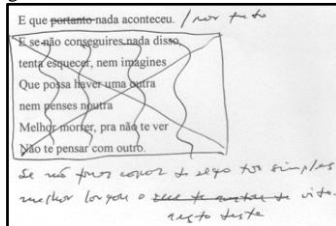 E que portanto nada aconteceu. / por tanto
E se não conseguires nada disso,
tenta esquecer, nem imagines
Que possa haver uma outra
nem penses noutra
Melhor morrer, pra não te ver
Não te pensar com outro.
Se não fores capaz de tão simples
melhor a vida.